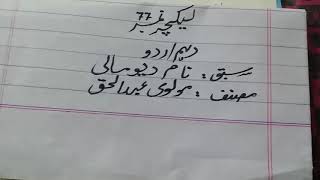 لیکچر نمبر 77
دہم اردو
سبق : نام دیو مالی
مصنف : مولوی عبدالحق